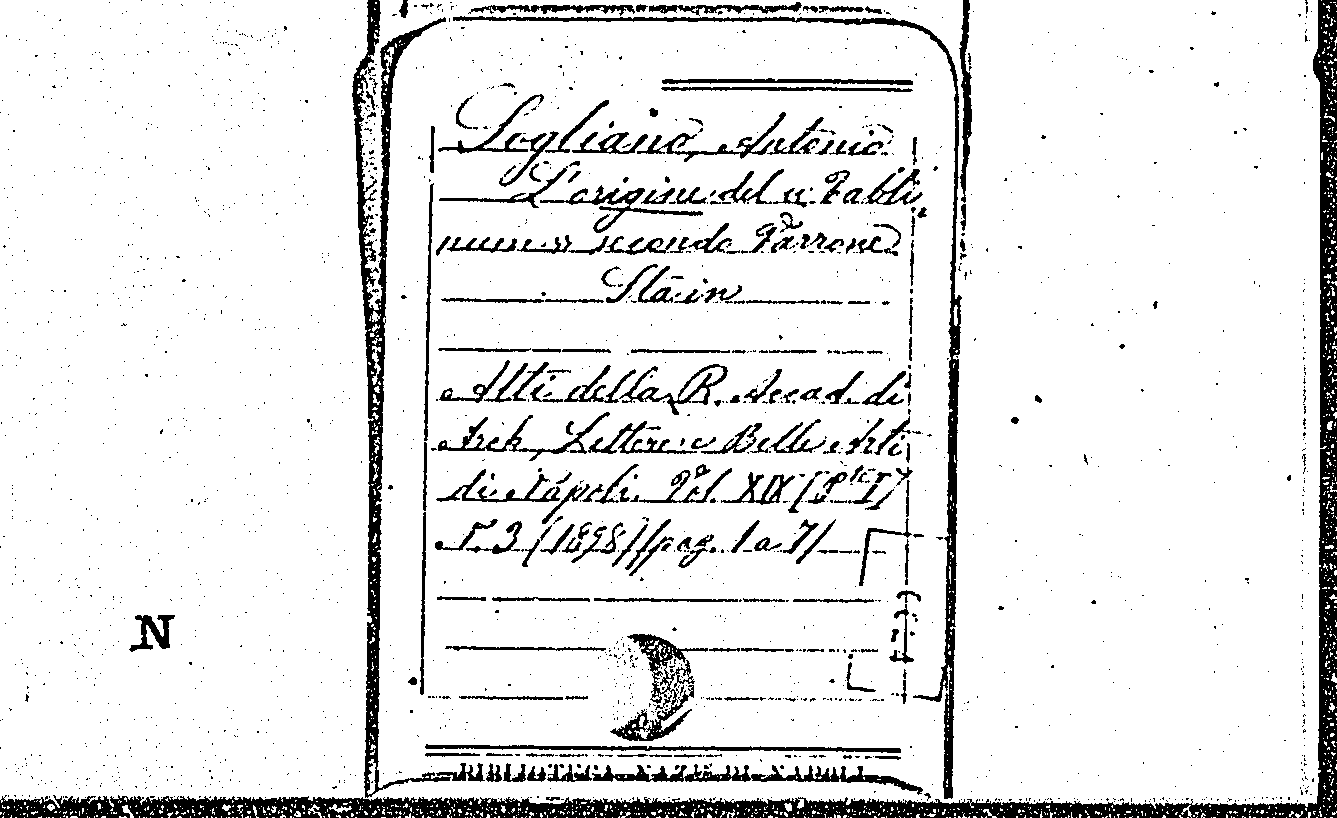 Sogliano, Antonio
L'origine del « Tabli,
num » secondo Varrone
Sta in
Atti della R. Accad. di
Arch, Lettere e Belle Arti
di Napoli. Vol. XIX (Pte I)
N. 3 (1898) (pag. 1 a 7)
N
BIBLIOTECA NAZ. DI NAPOLI